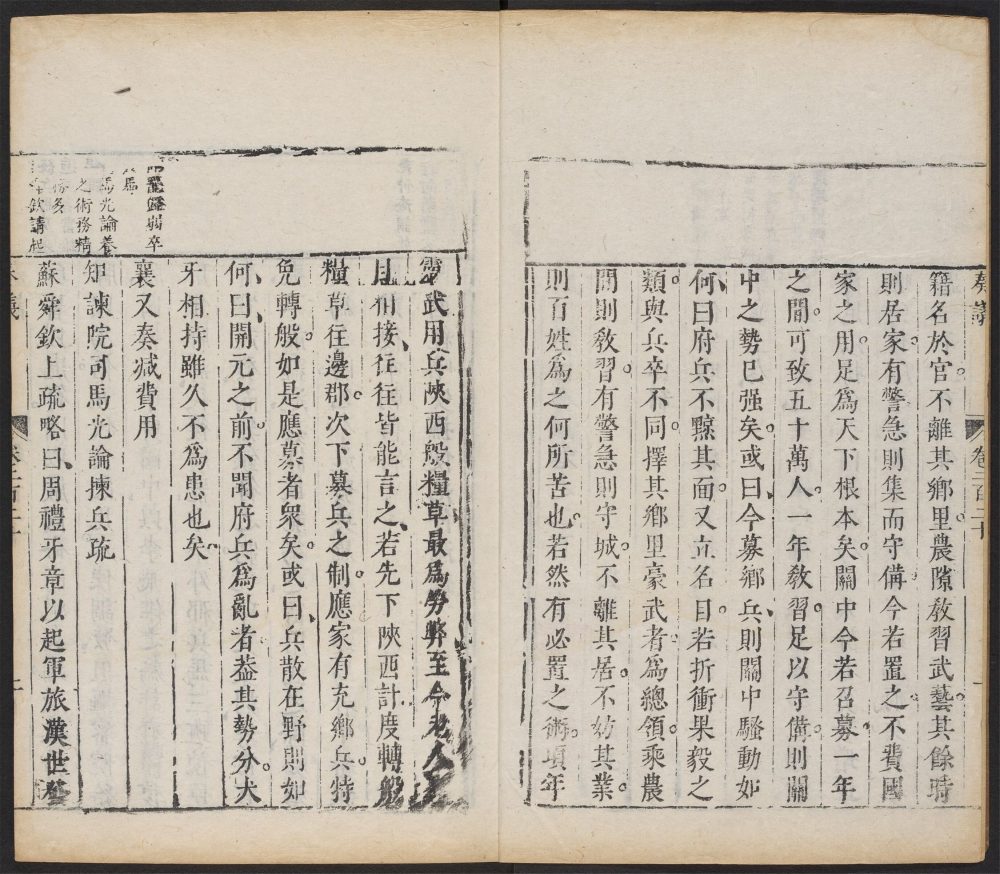 奏議 卷二百二十
籍名於官。不離其鄉里。農隙教習武藝。其餘時
則居家。有警急則集而守備。今若置之。不費國
家之用。足爲天下根本矣。關中今若召募。一年
之間。可致五十萬人。一年教習。足以守備。則關
中之勢已强矣。或曰。今募鄉兵。則關中騷動如
何。曰。府兵不黥其面。又立名目。若折衝果毅之
類。與兵卒不同。擇其鄉里豪武者。爲總領。乘農
閒則教習。有警急則守城。不離其居。不妨其業。
則百姓爲之何所苦也。若然有必置之術。頃年
靈武用兵。陝西般糧草最爲勞弊。至今老人
相接。往往皆能言之。若先下陝西計度轉般
糧草往邊郡。次下募兵之制。應家有充鄉兵。特
免轉般。如是應募者衆矣。或曰。兵散在野則如
何。曰。開元之前。不聞府兵爲亂者。葢其勢分。犬
牙相持。雖久不爲患也矣。
襄又奏減費用
知諫院司馬光論揀兵疏
蘇舜欽上疏略曰。周禮牙章以起軍旅。漢世發
弱卒
馬光論養
之術務精
務多
舜欽請起
奏議